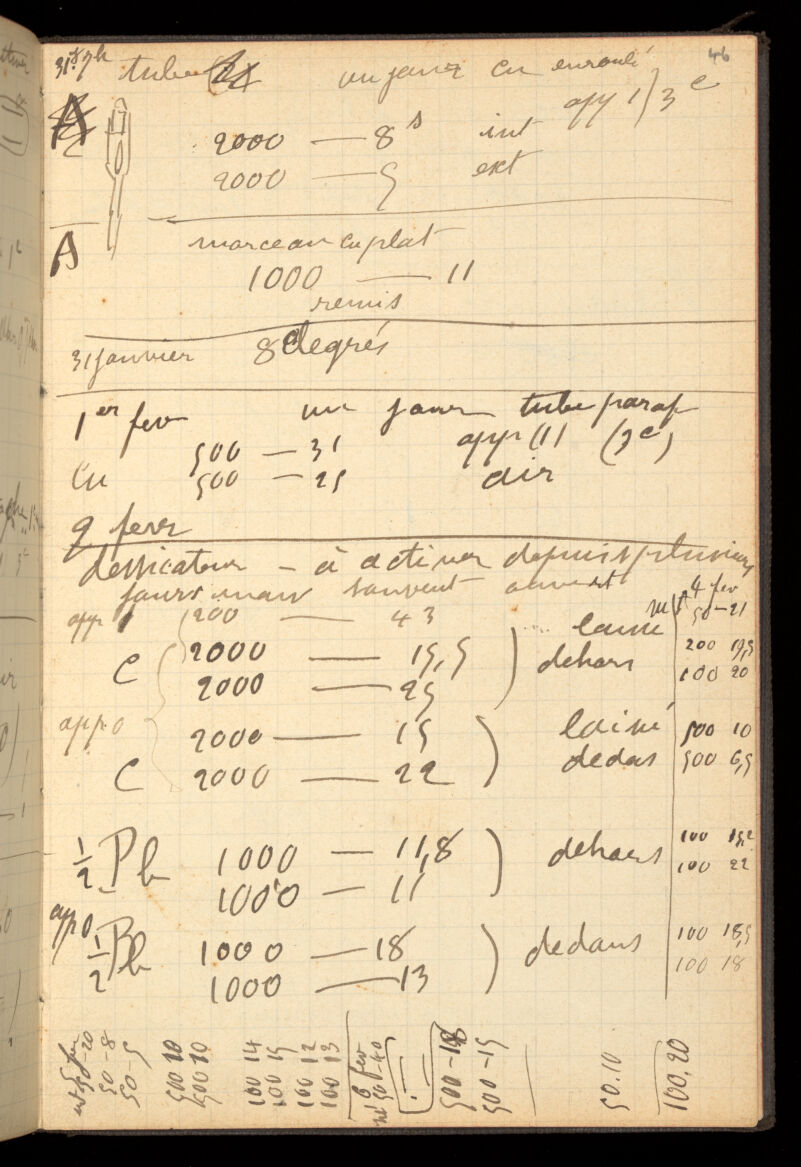 46
tube un janv en enroulé
app 1) 3 e
A 2000 — 8 s int
2000 — 5 ext
A
morceau cu plat
1000 — 11
remis
31 janvier 8 degrés
1er fev un janv tube paraf
500 — 31 app (1) (3e)
Cu 500 — 25 air
9 fevr
dessicateur – à activer depuis plusieurs
jours mais souvent ouvert
4 fev
50–21
app 1 200 — 43
C 2000 — 15,5 laissé 200 19,5
2000 — 25 dehors 100 20
app 0 2000 — 15 laissé 500 10
C 2000 — 22 dedas 500 6,5
1/2 Pb 1000 — 11,8 dehors 100 15,2
1000 — 11 100 22
app 0
1/2 Pb 1000 — 18 dedans 100 18,5
1000 — 13 100 18
50–20
50–8
50–5
500 10
500 10
100 14
100 15
100 12
100 13
6 fev
50–40
500–18
500–15
50.10
100.20